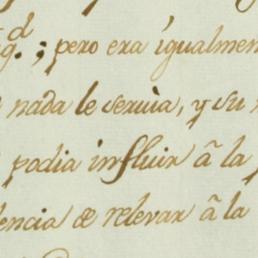 qd.; pero era igualmen
nada le servia, y su
podia influir â la
encia de relevar â la